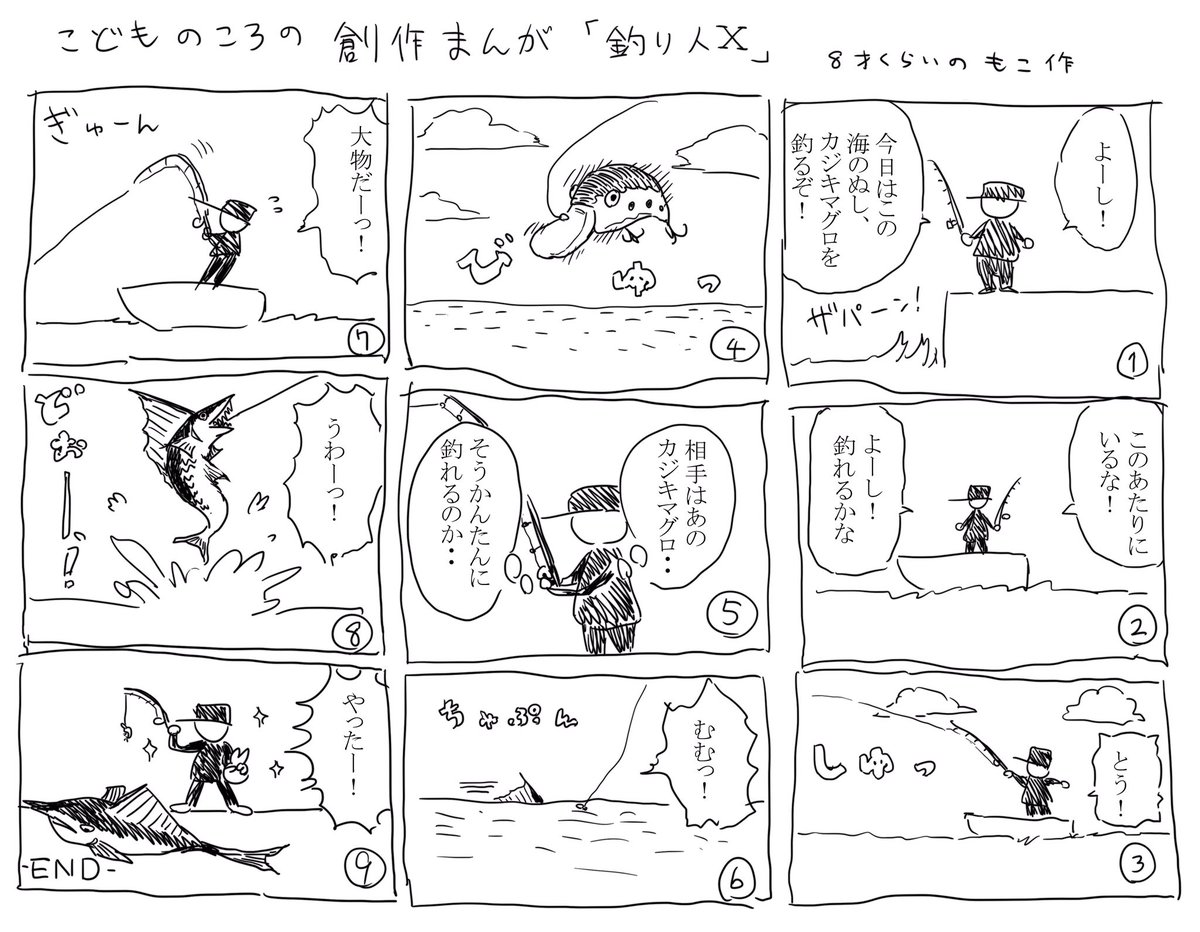 こどものころの 創作まんが「釣り人X」
8才くらいの もこ作
よーし！
今日はこの
海のぬし、
カジキマグロを
釣るぞ！
ザパーン！
①
このあたりに
いるな！
よーし！
釣れるかな
②
とう！
しゅっ
③
びゅっ
④
相手はあの
カジキマグロ・・
そうかんたんに
釣れるのか・・
⑤
むむっ！
ちゃぷん
⑥
大物だーっ！
ぎゅーん
⑦
うわーっ！
⑧
やったー！
-END-
⑨